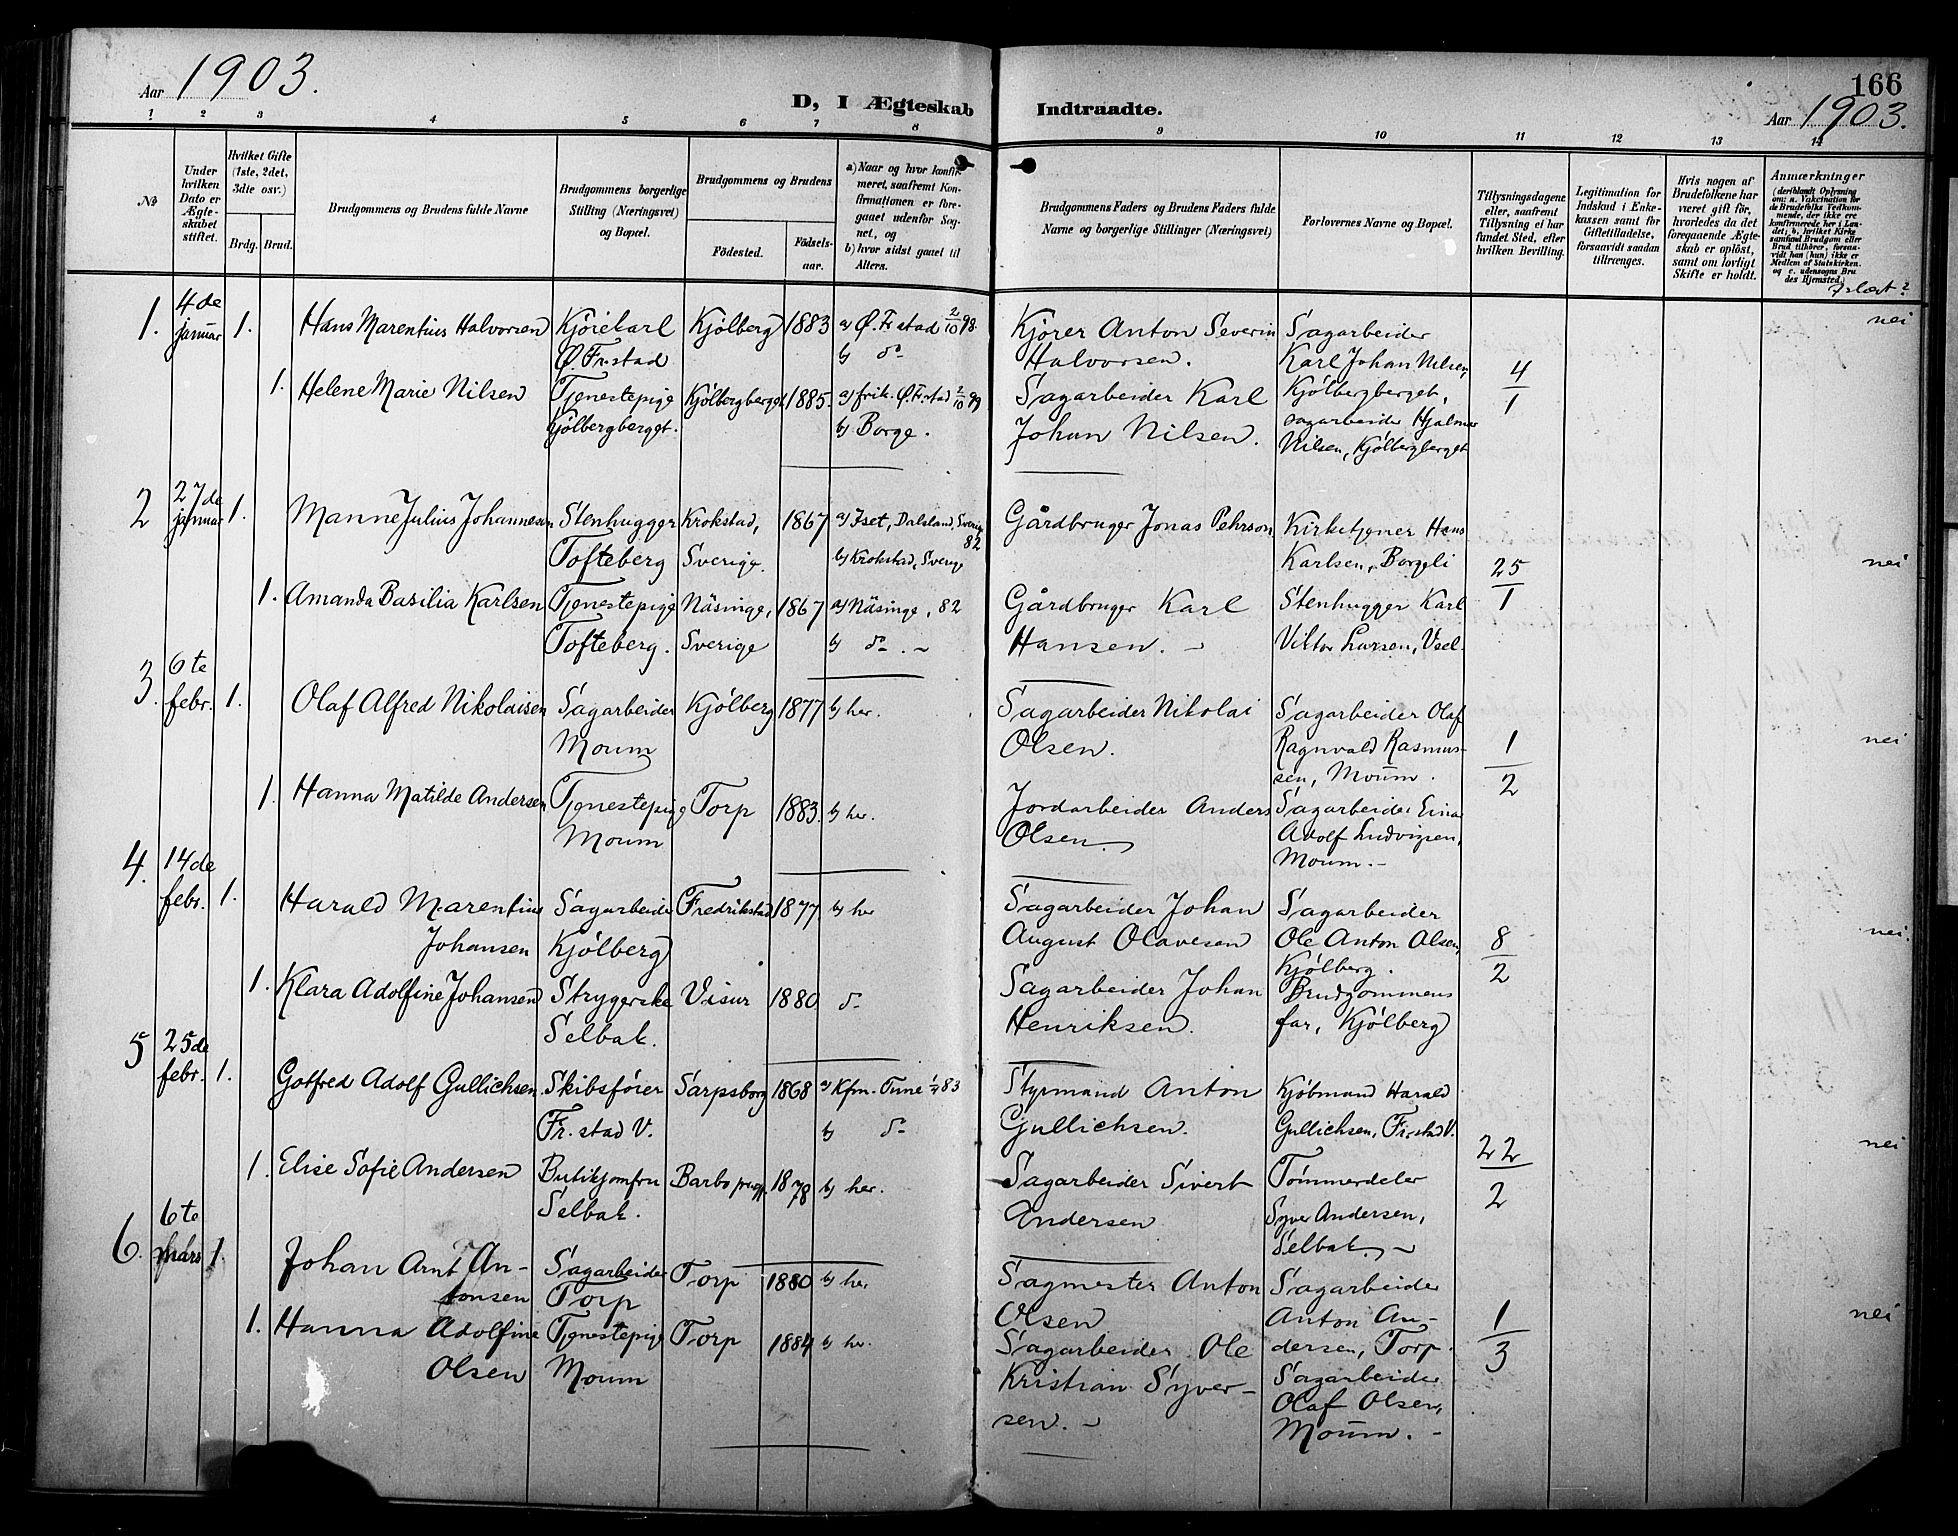 Aar 1903.
D, I Ægteskab Indtraadte.
166
Aar 1903.
1 2 3 4 5 6 7 8 9 10 11 12 13 14
No
Under hvilken Dato er Ægteskabet stiftet.
Hvilket Gifte (1ste, 2det, 3die osv.)
Brdg. Brud.
Brudgommens og Brudens fulde Navne
Brudgommens borgerlige Stilling (Næringsvei) og Bopæl.
Brudgommens og Brudens
Fødested.
Fødselsaar.
a) Naar og hvor konfirmeret, saafremt Konfirmationen er foregaaet udenfor Sognet, og
b) hvor sidst gaaet til Alters.
Brudgommens Faders og Brudens Faders fulde Navne og borgerlige Stillinger (Næringsvei)
Forlovernes Navne og Bopæl.
Tillysningsdagene eller, saafremt Tillysning ei har fundet Sted, efter hvilken Bevilling.
Legitimation for Indskud i Enkekassen samt for Giftetilladelse, forsaavidt saadan tiltrænges.
Hvis nogen af Brudefolkene har været gift før, hvorledes da det foregaaende Ægteskab er opløst, samt om lovligt Skifte er holdt.
Anmærkninger
(deriblandt Oplysning om: a. Vaccination for de Brudefolks Vedkommende, der ikke ere konfirmerede her i Landet; b. hvilket Kirkesamfund Brudgom eller Brud tilhører, forsaavidt han (hun) ikke er Medlem af Statskirken. og c. udensogns Brudes Hjemsted.)
1. 4de januar 1. Hans Marentius Halvorsen Kjörekarl Kjölberg 1883 a) Ø. Fr.stad 2/10 98. Kjörer Anton Severin Sagarbeider nei
Ø. Fr.stad b) do Halvorsen. Karl Johan Nilsen, 4/1
1. Helene Marie Nilsen Tjenestepige Kjölbergberget 1885. a) frik. Ø. Fr.stad 2/10 99 Sagarbeider Karl Kjölbergberget,
Kjölbergberget. b) Borge. Johan Nilsen. sagarbeider Hjalmar
Nilsen, Kjölbergberget
2 27de januar 1. Manne Julius Johannesen Stenhugger Krokstad, 1867 a) Iset, Dalsland, Sverige 82 Gårdbruger Jonas Pehrson Kirketjener Hans
Tofteberg Sverige. b) Krokstad, Sverige Karlsen, Borgeli 25/1 nei
1. Amanda Basilia Karlsen Tjenestepige Näsinge, 1867 a) Näsinge, 82 Gårdbruger Karl Stenhugger Karl
Tofteberg. Sverige b) do Hansen. Viktor Larsen, Veel.
3. 6te febr. 1. Olaf Alfred Nikolaisen Sagarbeider Kjölberg 1877 b) her. Sagarbeider Nikolai Sagarbeider Olaf
Moum Olsen. Ragnvald Rasmussen, Moum. 1/2 nei
1. Hanna Matilde Andersen Tjenestepige Torp 1883. b) her. Jordarbeider Anders Sagarbeider Einar
Moum Olsen. Adolf Ludvigsen,
Moum.
4. 14de febr. 1. Harald Marentius Sagarbeider Fredrikstad 1877 b) her Sagarbeider Johan Sagarbeider
Johansen Kjölberg August Olavesen Ole Anton Olsen, 8/2 nei.
Kjölberg.
1. Klara Adolfine Johansen Strygerske Visur 1880 do Sagarbeider Johan Brudgommens
Selbak. Henriksen. far, Kjölberg
5 25de febr. 1. Gotfred Adolf Gullichsen Skibsförer Sarpsborg 1868 a) Kfm. Tune 83 Styrmand Anton Kjöbmand Harald
Fr.stad V. b) do Gullichsen. Gullichsen, Fr.stad V. nei
1. Elise Sofie Andersen Butikjomfru Barbo 1878 b) her. Sagarbeider Sivert Tömmerdeler 22/2
Selbak. Andersen Syver Andersen,
Selbak.
6. 6te mars 1. Johan Arnt An- Sagarbeider Torp 1880 b) her Sagmester Anton Sagarbeider
tonsen Torp Olsen Anton An- 1/3 nei
1. Hanna Adolfine Tjenestepige Torp 1884 b) her. Sagarbeider Ole dersen, Torp.
Olsen Moum Kristian Syver- Sagarbeider
sen. Olaf Olsen,
Moum.